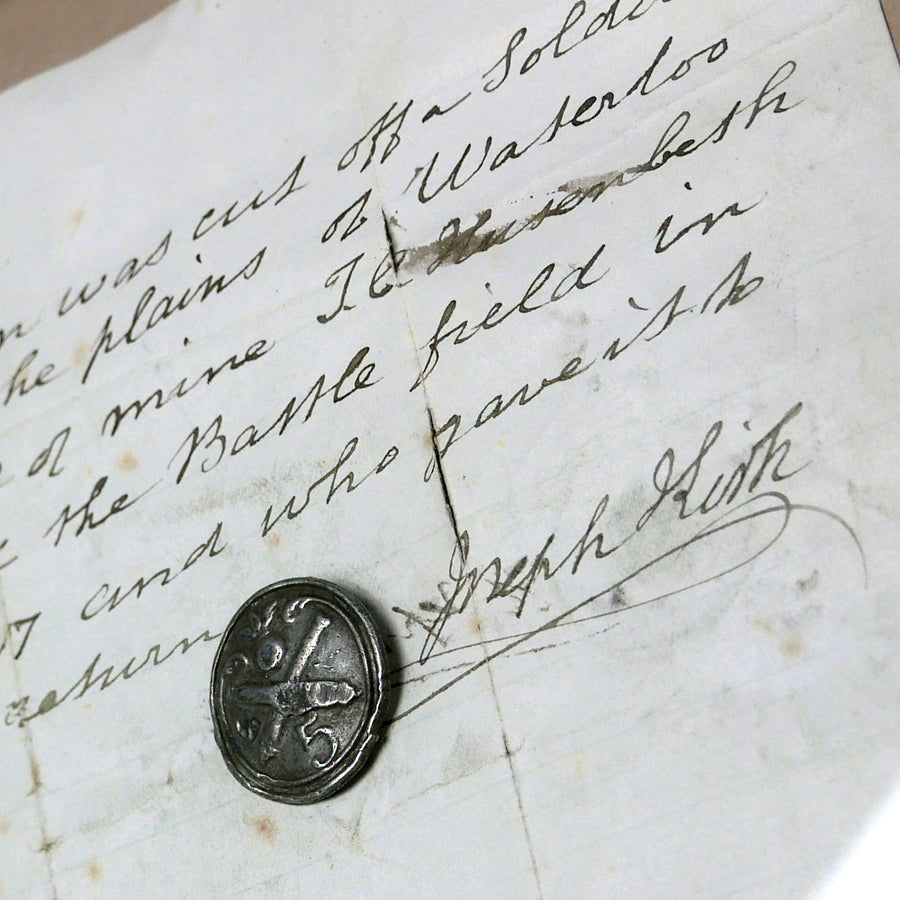 n was cut off a Soldie
he plains of Waterloo
of mine F.C. Husenbeth
the Battle field in
and who gave it to
return
Joseph Kirk
5